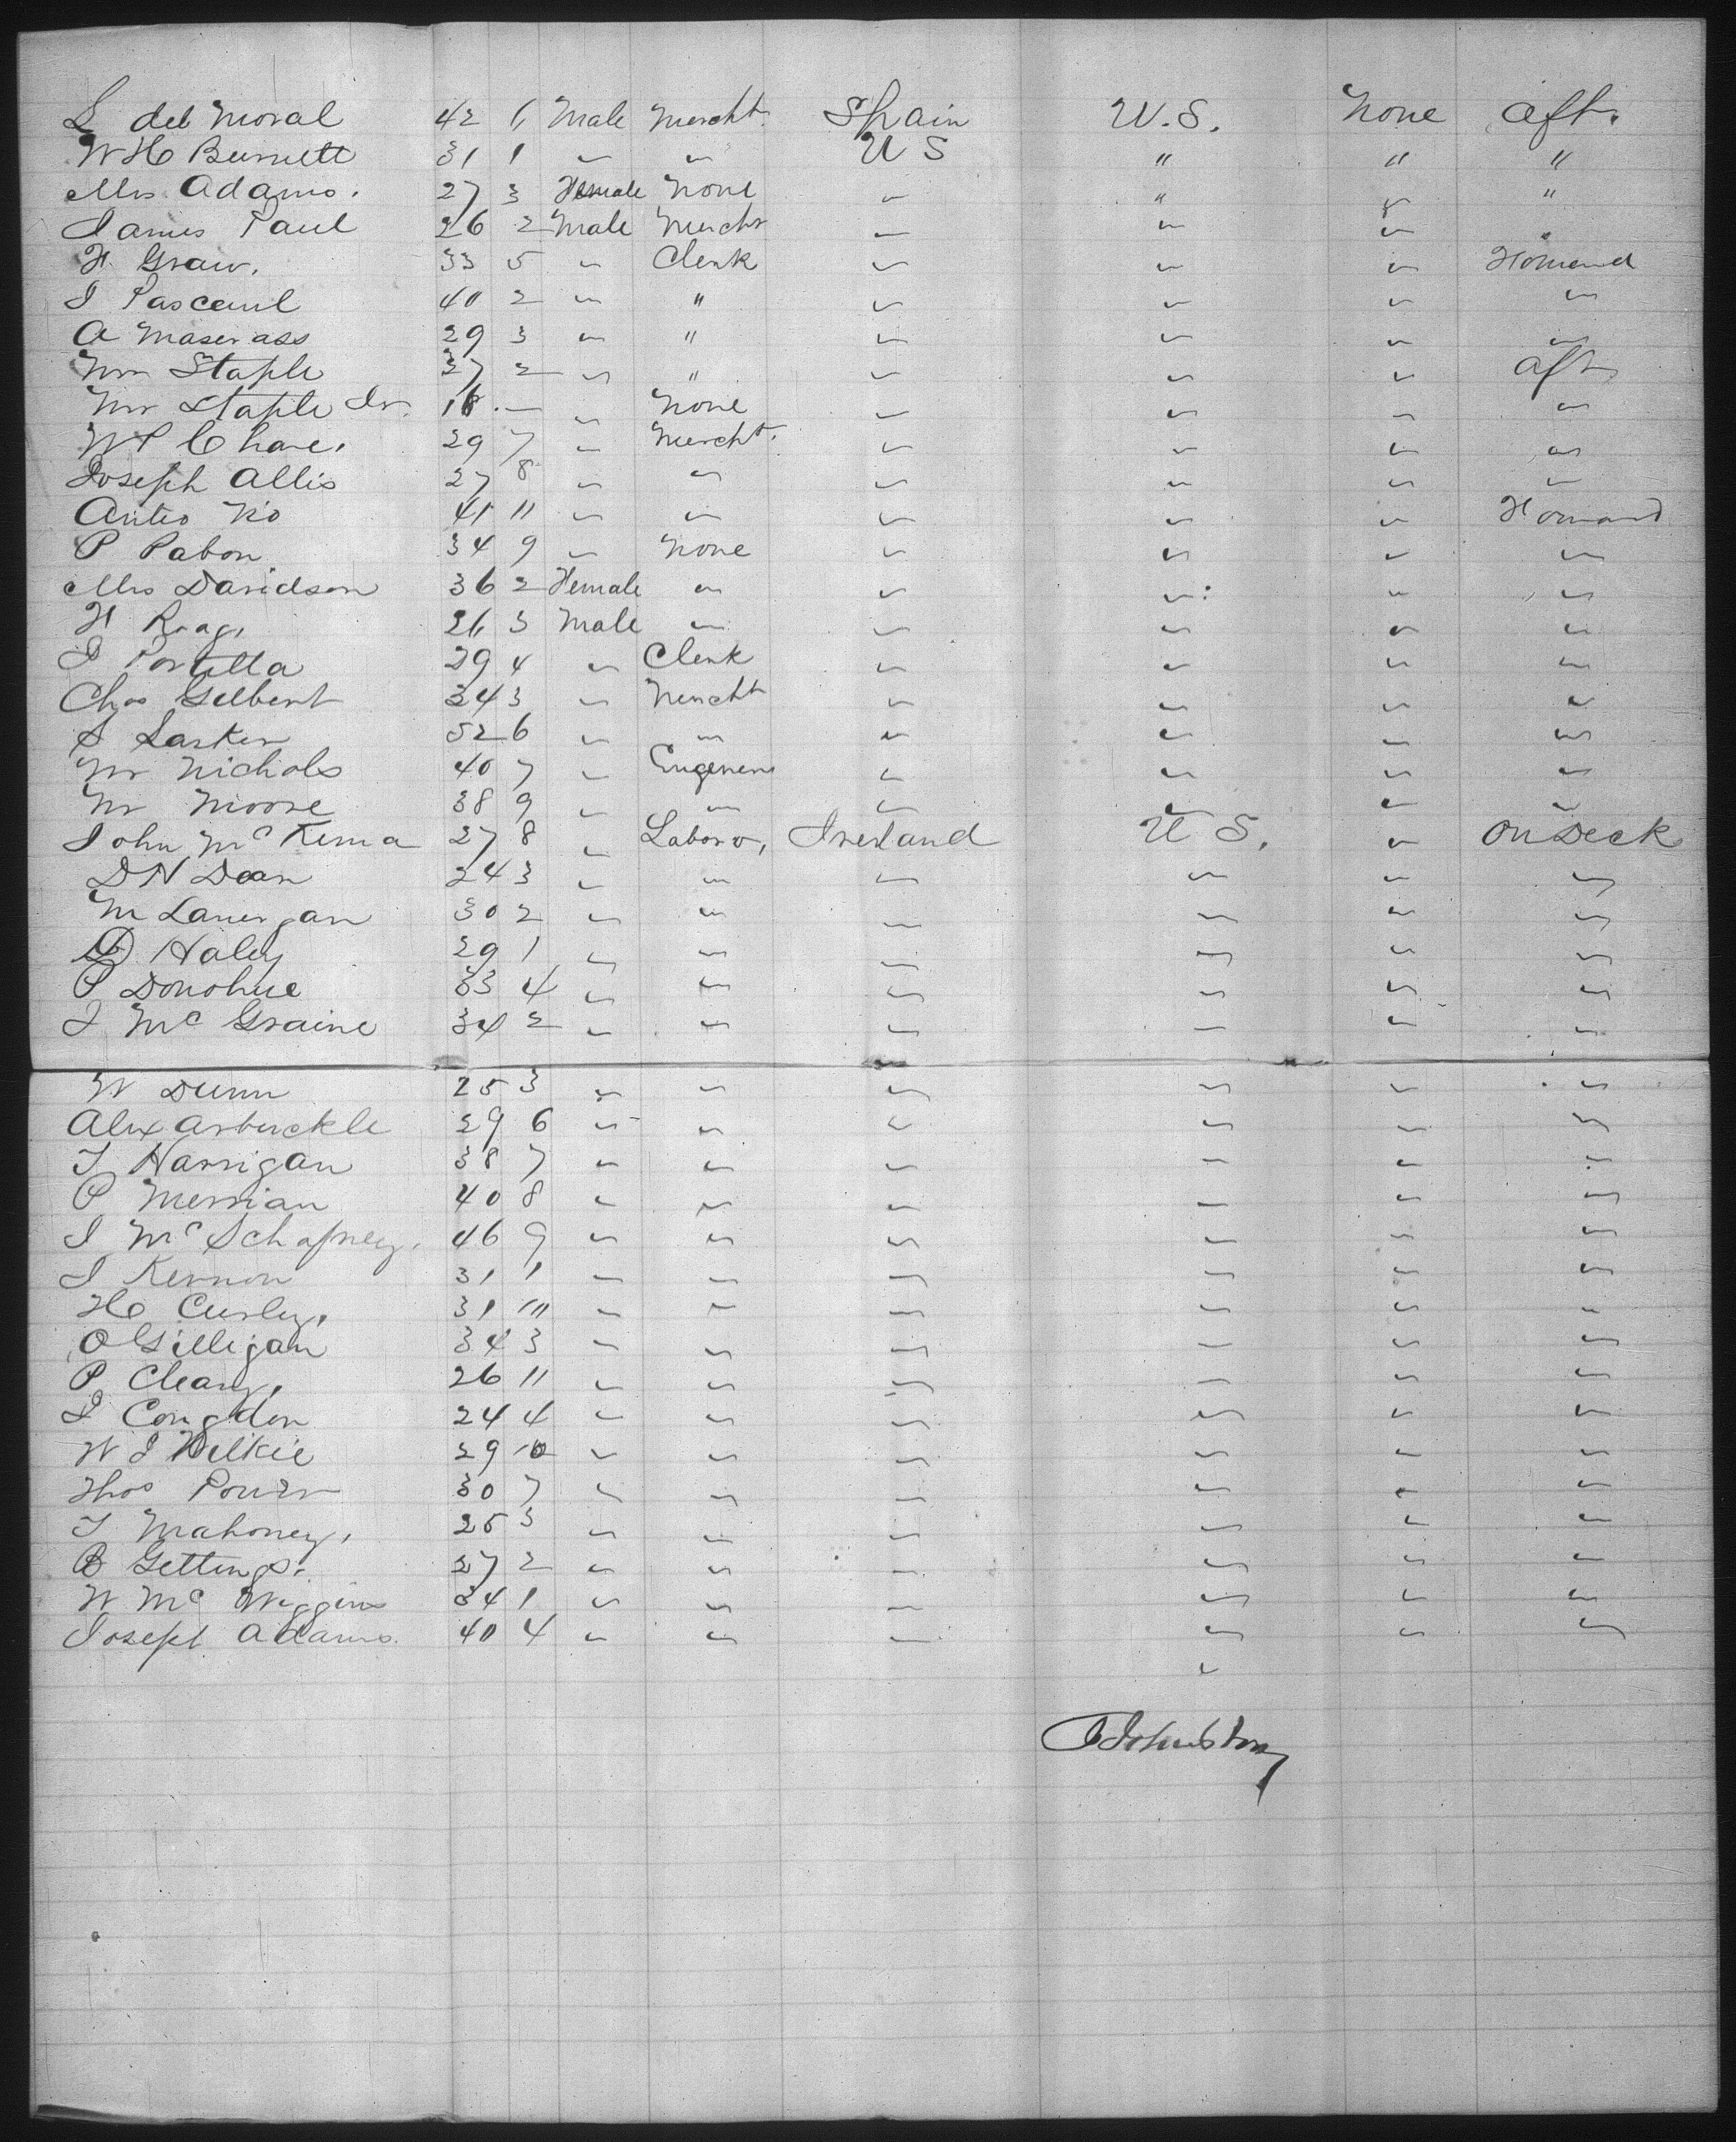 L del Moral 42 6 Male Mercht. Spain U.S. None aft.
W H Burnett 31 1 " " U S " " "
Mrs Adams. 27 3 Female None " " " "
James Paul 26 2 Male Mercht " " "
H Graw. 33 5 " Clerk " " " Forward
J Pascaul 40 2 " " " " " "
A Maserass 29 3 " " " " " "
Mr Staple 37 2 " " " " " aft
Mr Staple Jr. 18 — " None " " " "
W P Chase. 29 7 " Mercht. " " " "
Joseph Allis 27 8 " " " " " "
Anteo Rio 41 11 " " " " " Forward
P Pabon 34 9 " None " " " "
Mrs Davidson 36 2 Female " " " " "
H Roag. 26 3 Male " " " " "
J Portilla 29 4 " Clerk " " " "
Chas Gilbert 34 3 " Mercht " " " "
S Larker 52 6 " " " " " "
Mr Nichols 40 7 " Engeneer " " " "
Mr Moore 38 9 " " " " " "
John McKenna 27 8 " Labor, Ireland U S. " On Deck
D N Dean 24 3 " " " " " "
M Lanergan 30 2 " " " " " "
D Haley 29 1 " " " " " "
P Donohue 33 4 " " " " " "
J McGraine 34 2 " " " " " "
W Dunn 25 3 " " " " " "
Alex Arbuckle 29 6 " " " " " "
T Harrigan 38 7 " " " " " "
P Merrian 40 8 " " " " " "
J Mc 46 9 " " " " " "
J Kernon 31 1 " " " " " "
H Curley. 31 11 " " " " " "
O Gilligan 34 3 " " " " " "
P Cleary. 26 11 " " " " " "
J Congdon 24 4 " " " " " "
W J Wilkie 29 10 " " " " " "
Thos Power 30 7 " " " " " "
T Mahoney. 25 3 " " " " " "
B Gettings. 27 2 " " " " " "
W Mc Wiggins 34 1 " " " " " "
Joseph Adams. 40 4 " " " " " "
"
Johnston